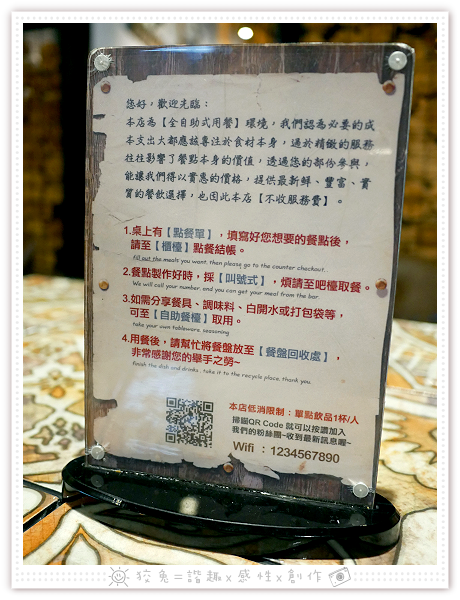 您好，歡迎光臨：
本店為【全自助式用餐】環境，我們認為必要的成
本支出大都應該專注於食材本身，過於精緻的服務
往往影響了餐點本身的價值，透過您的部份參與，
能讓我們得以實惠的價格，提供最新鮮、豐富、實
質的餐飲選擇，也因此本店【不收服務費】。
1.桌上有【點餐單】，填寫好您想要的餐點後，
請至【櫃檯】點餐結帳。
fill out the meals you want. then please go to the counter checkout.
2.餐點製作好時，採【叫號式】，煩請至吧檯取餐。
We will call your number, and you can get your meal from the bar.
3.如需分享餐具、調味料、白開水或打包袋等，
可至【自助餐檯】取用。
take your own tableware, seasoning
4.用餐後，請幫忙將餐盤放至【餐盤回收處】，
非常感謝您的舉手之勞~
finish the dish and drinks . take it to the recycle place. thank you.
本店低消限制：單點飲品1杯/人
掃瞄QR Code 就可以按讚加入
我們的粉絲團~收到最新訊息喔~
Wifi ：1234567890
狡兔=諧趣x感性x創作